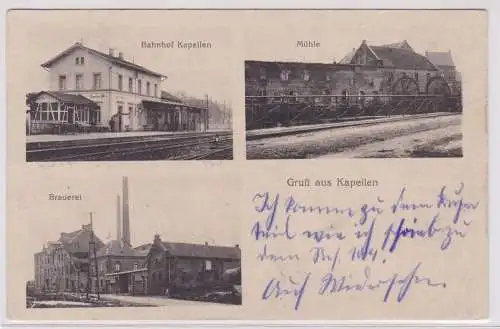 Bahnhof Kapellen
Mühle
Brauerei
Gruß aus Kapellen
Ich komme zu dem
teil wie ich schrieb zu
dem
Auf Wiedersehen.